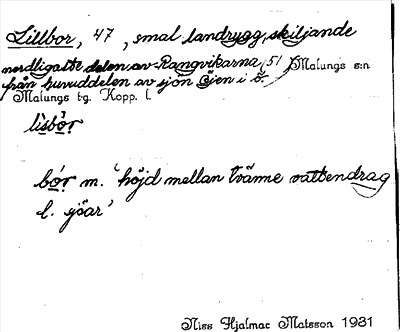 Lillbor, 47, smal landrygg, skiljande
nordligaste delen av Rangvikarna (51)
Malungs s:n
från huvuddelen av sjön Öjen i ö.
Malungs tg. Kopp. l.
lisbȯr
bór m. 'höjd mellan tvänne vattendrag
l. sjöar'
Niss Hjalmar Matsson 1931